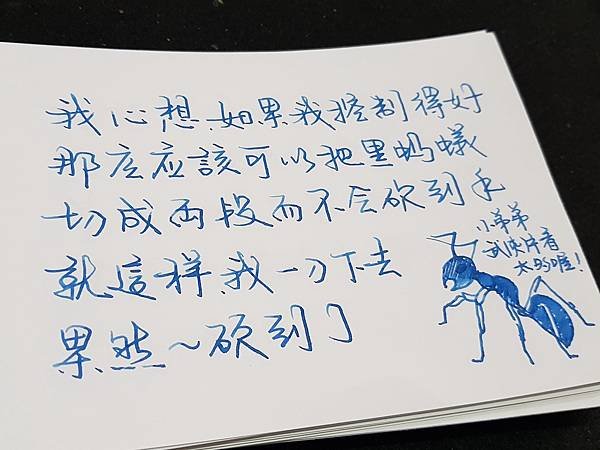 我心想.如果我控制得好
那麼应該可以把黑螞蟻
切成兩段而不会砍到手
就這樣.我一刀下去
果然~砍到了
小弟弟
武俠片看
太多喔!